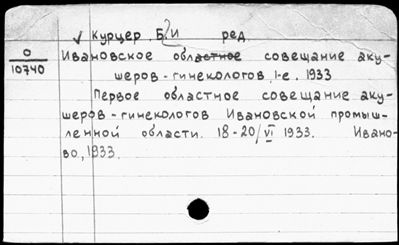 ✓ Курцер, Б. И ред.
О
10740
Ивановское областное совещание аку-
шеров-гинекологов, 1-е. 1933
Первое областное совещание аку-
шеров-гинекологов Ивановской промыш-
ленной области. 18-20/VI 1933. Ивано-
во, 1933.